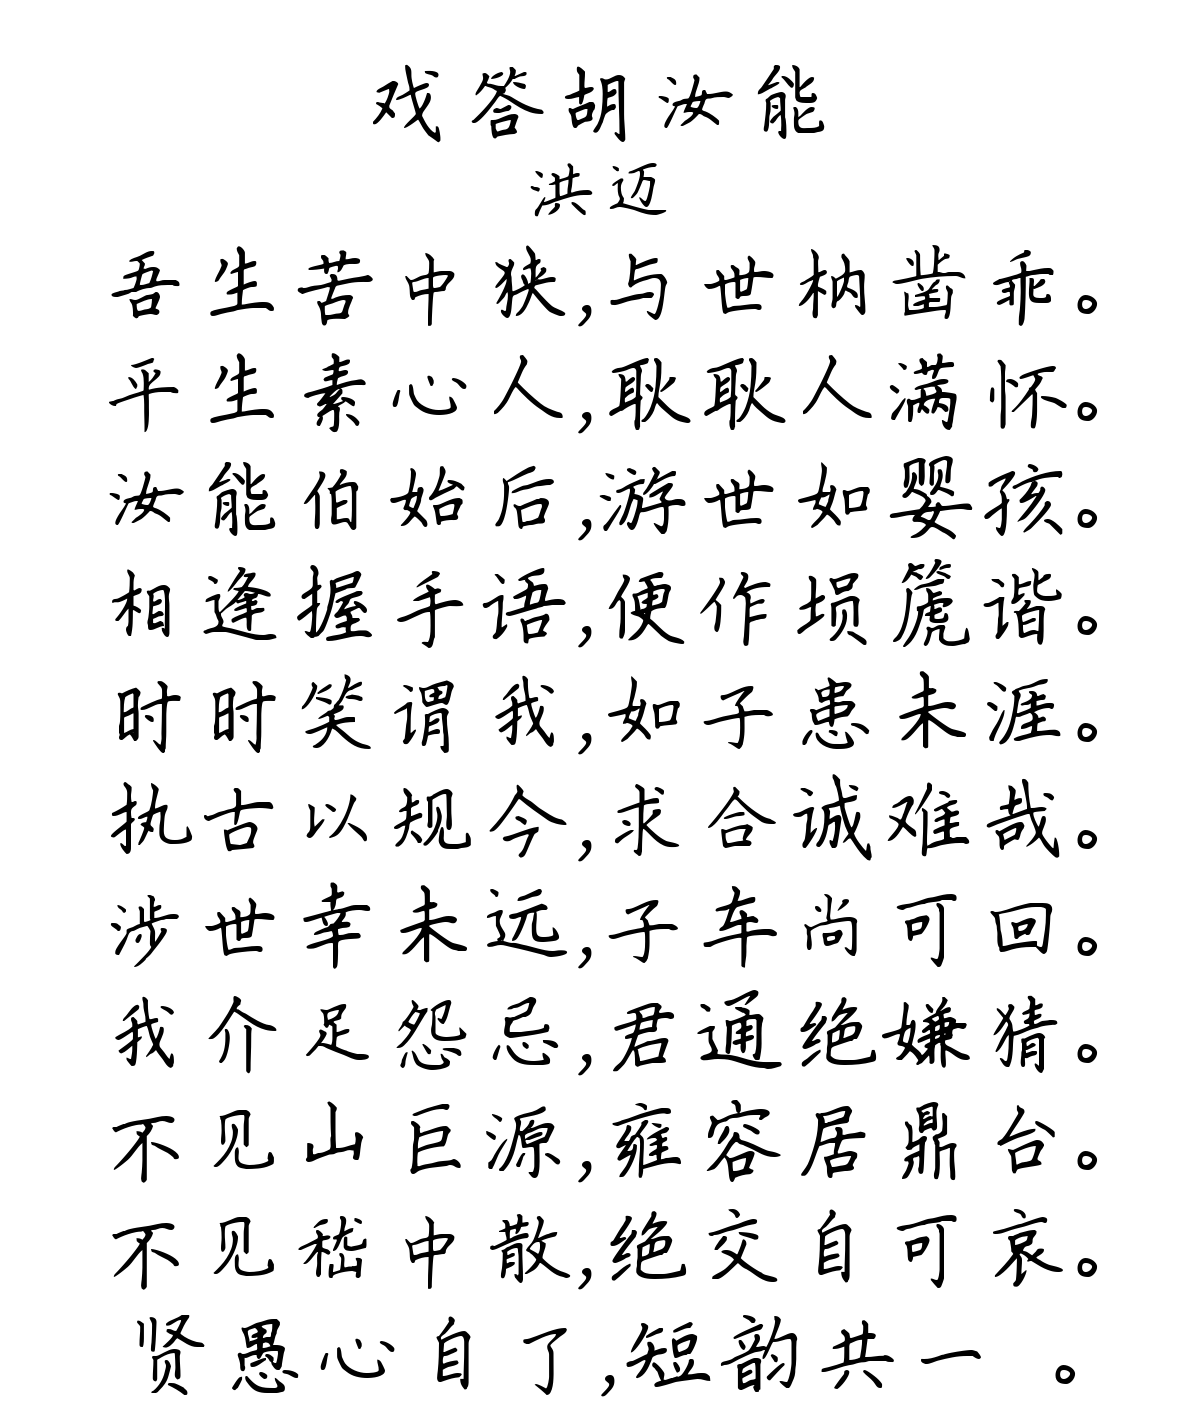 戏答胡汝能
洪迈
吾生苦中狭,与世枘凿乖。
平生素心人,耿耿人满怀。
汝能伯始后,游世如婴孩。
相逢握手语,便作埙篪谐。
时时笑谓我,如子患未涯。
执古以规今,求合诚难哉。
涉世幸未远,子车尚可回。
我介足怨忌,君通绝嫌猜。
不见山巨源,雍容居鼎台。
不见嵇中散,绝交自可哀。
贤愚心自了,短韵共一 。